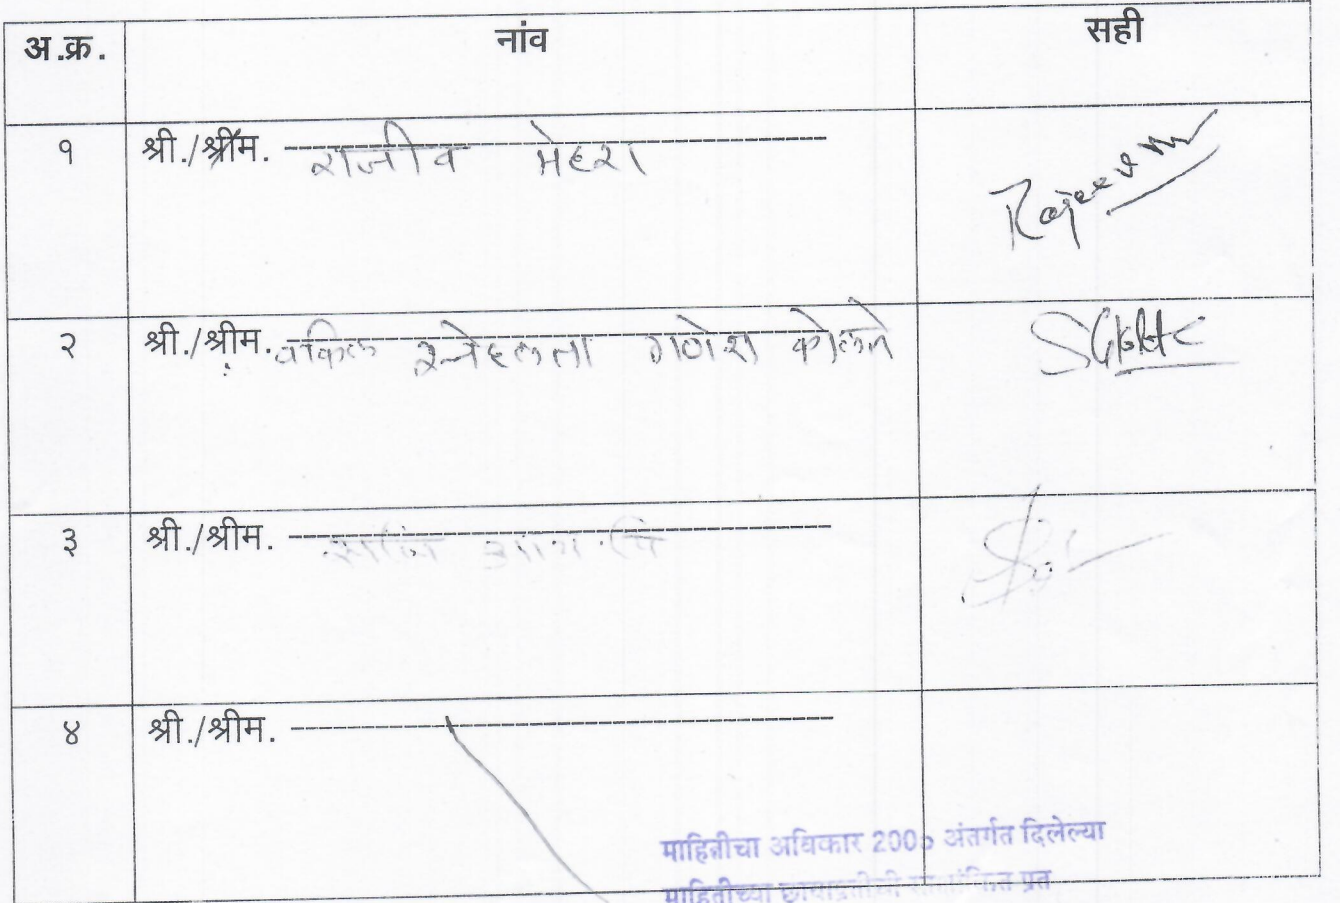 अ.क्र. नांव सही
१ श्री./श्रीम. राजीव मेहरा Rajeev M
२ श्री./श्रीम. वकिल स्नेहलता गणेश कोलते
३ श्री./श्रीम.
४ श्री./श्रीम.
माहितीचा अधिकार 2005 अंतर्गत दिलेल्या
माहितीच्या छायाप्रतीची प्रत